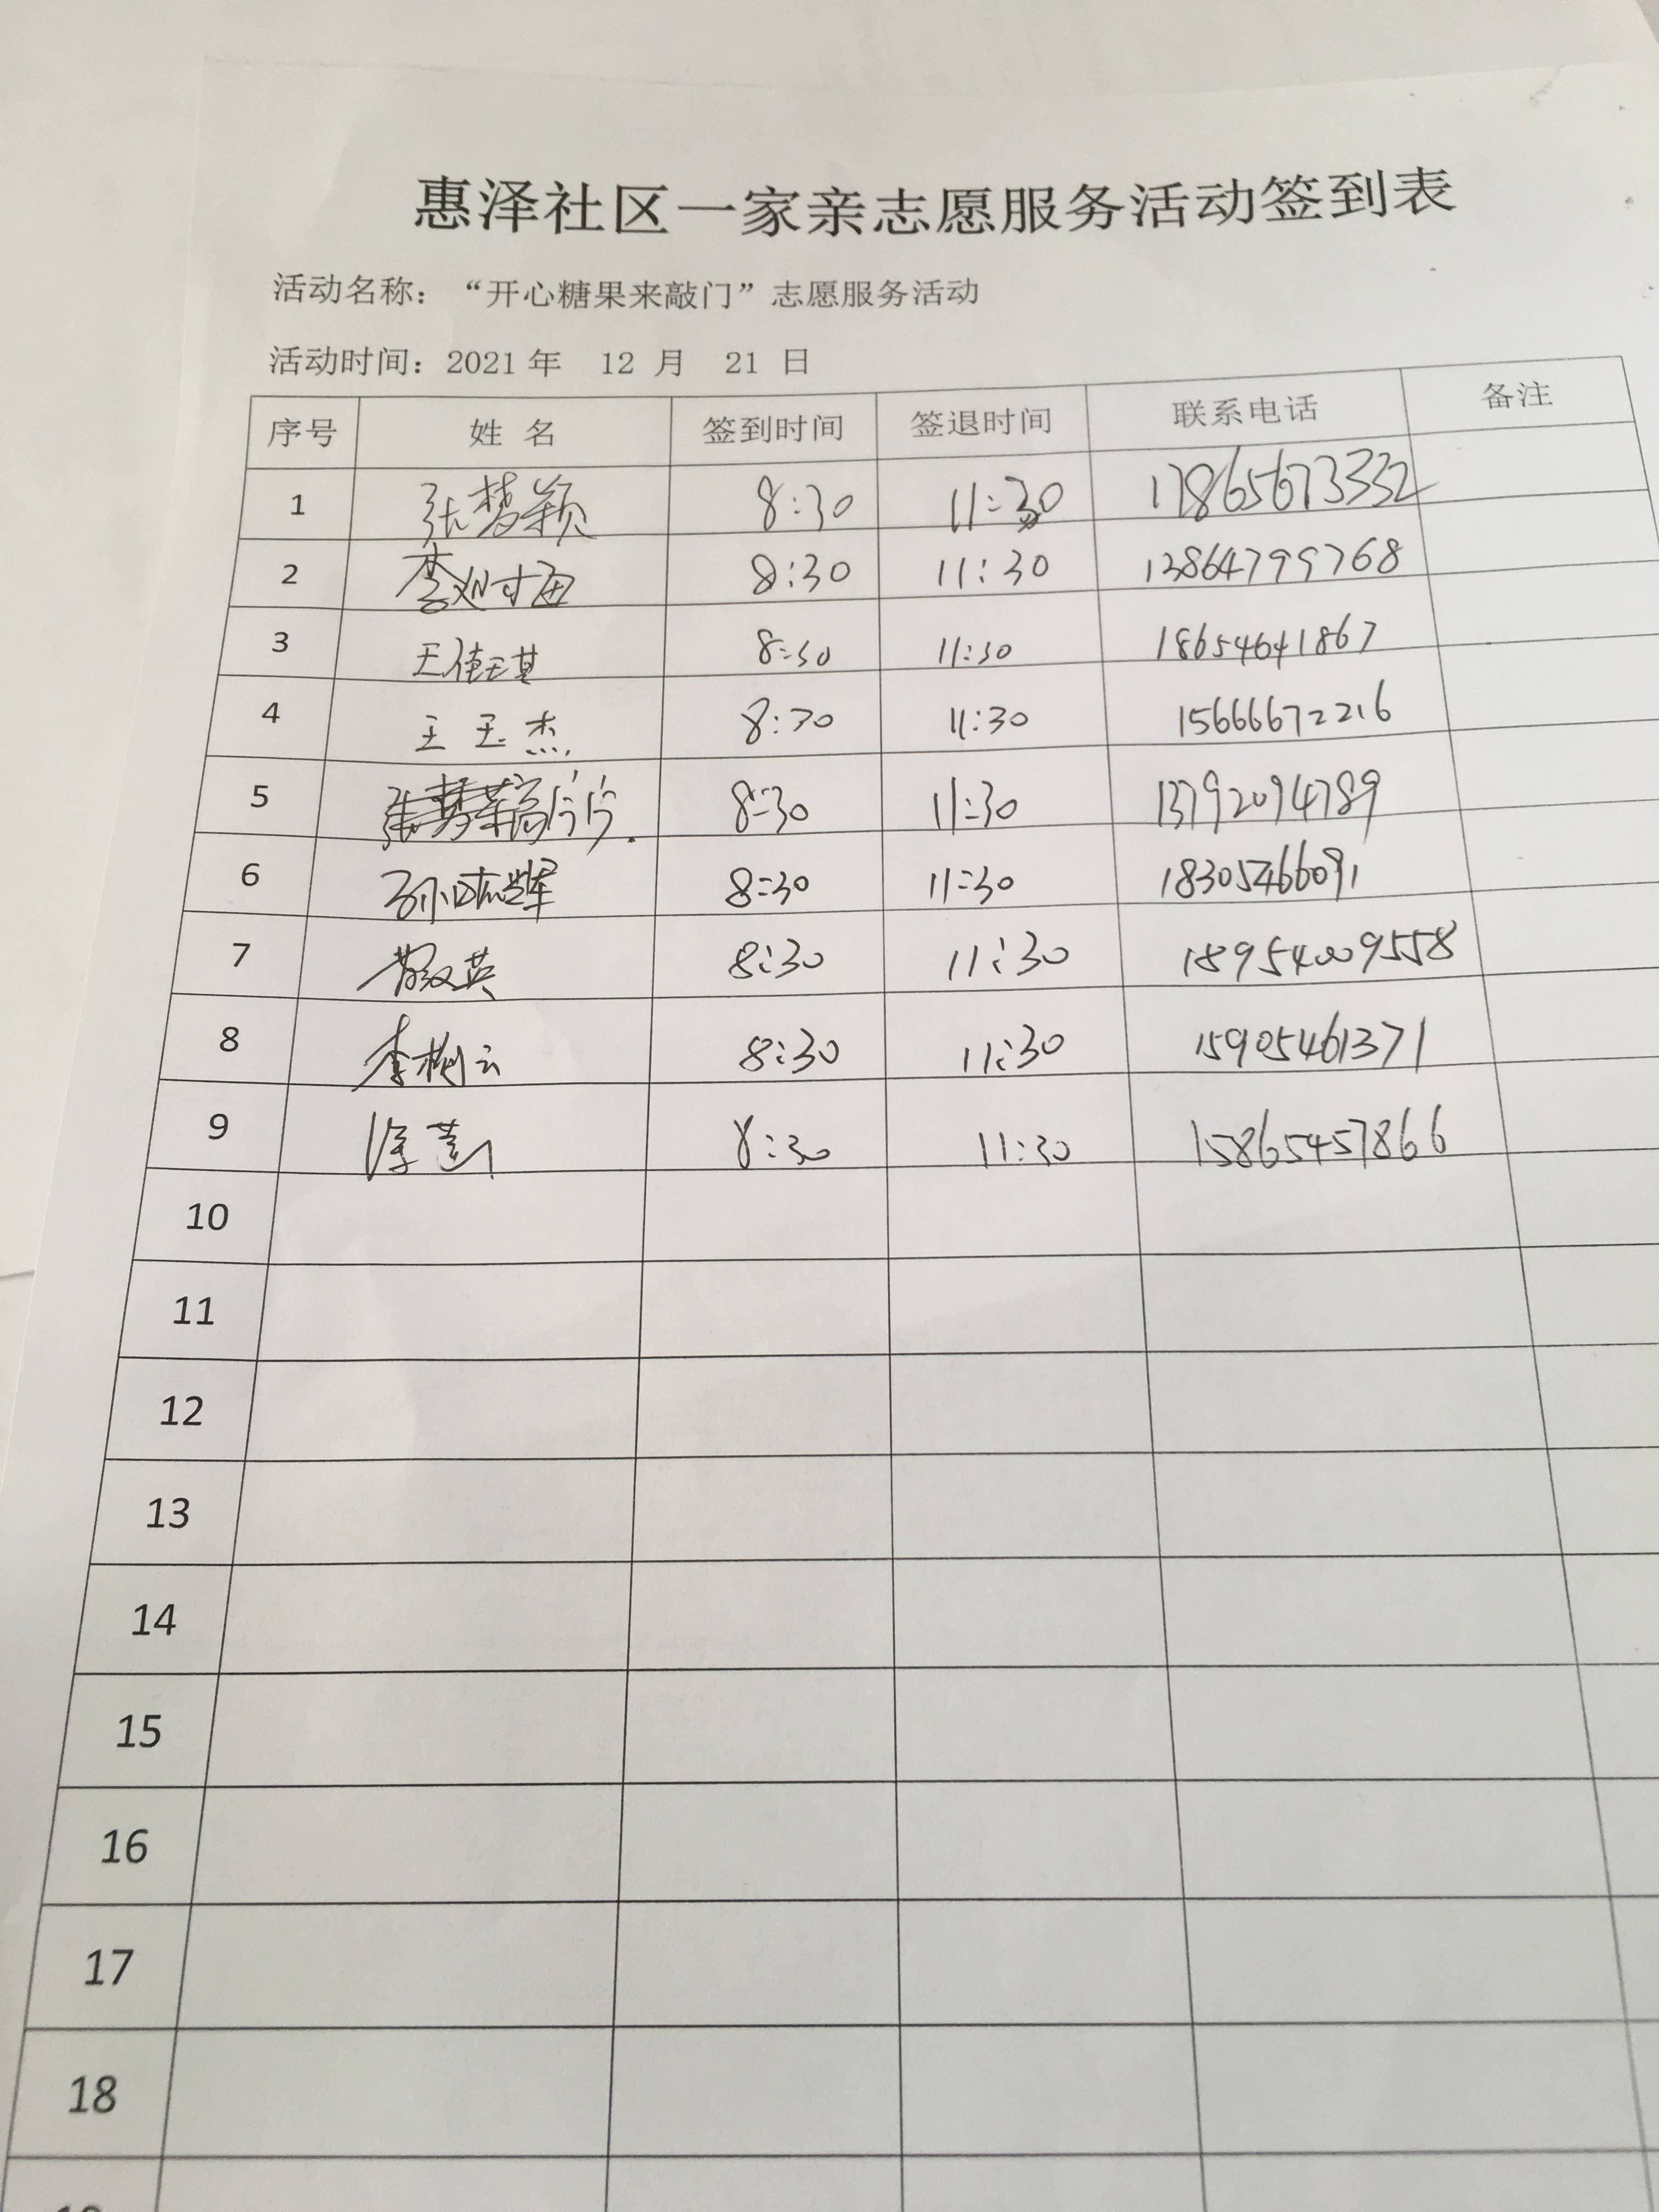 惠泽社区一家亲志愿服务活动签到表
活动名称：“开心糖果来敲门”志愿服务活动
活动时间：2021年 12 月 21 日
序号 姓 名 签到时间 签退时间 联系电话 备注
1 张梦颖 8:30 11:30 17865673332
2 李 8:30 11:30 13864799768
3 王佳琪 8:30 11:30 18654641867
4 王玉杰 8:30 11:30 15666672216
5 8:30 11:30 13792094789
6 孙 辉 8:30 11:30 18305466091
7 英 8:30 11:30 18954009558
8 李 云 8:30 11:30 15905461371
9 8:30 11:30 15865457866
10
11
12
13
14
15
16
17
18